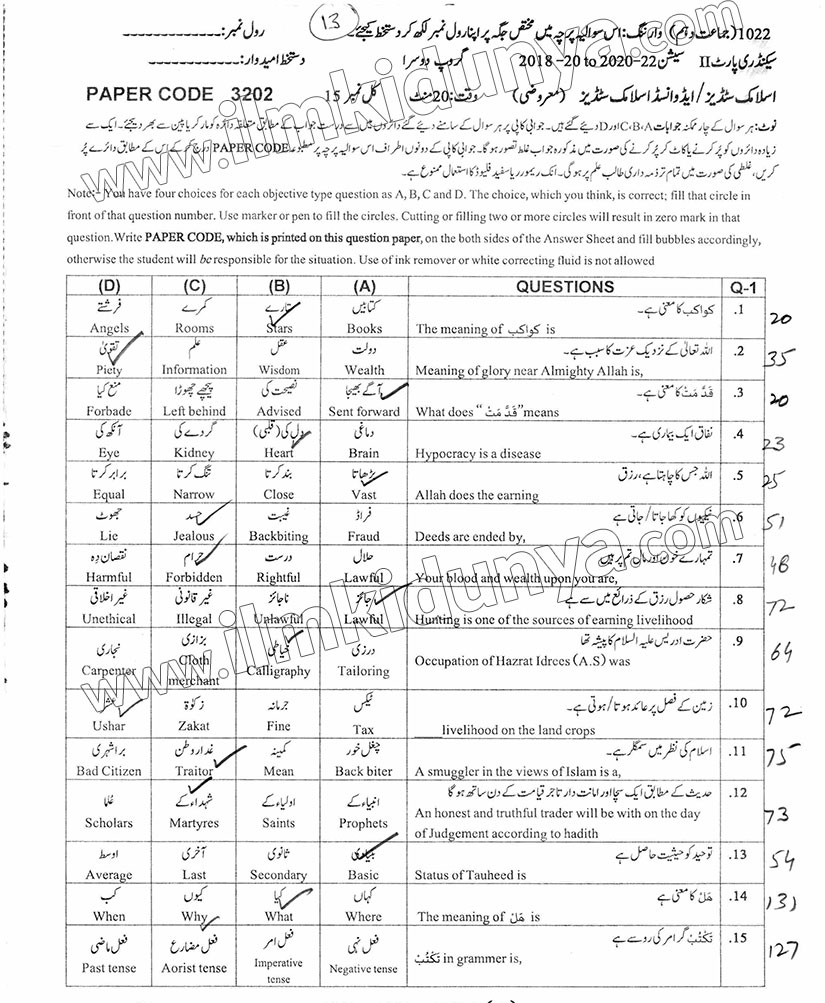 1022 (جماعت دہم) وارننگ: اس سوالیہ پرچہ میں مختص جگہ پر اپنا رول نمبر لکھ کر دستخط کیجئے۔ 13 رول نمبر:
سیکنڈری پارٹ II سیشن 2018-20 to 2020-22 گروپ دوسرا دستخط امیدوار:
اسلامک سٹڈیز/ایڈوانسڈ اسلامک سٹڈیز (معروضی) وقت: 20 منٹ کل نمبر 15 PAPER CODE 3202
نوٹ: ہر سوال کے چار ممکنہ جوابات C،B،A اور D دیئے گئے ہیں۔ جوابی کاپی پر ہر سوال کے سامنے دیئے گئے دائروں میں سے درست جواب کے مطابق متعلقہ دائرہ کو مارکر یا پین سے بھر دیجئے۔ ایک سے
زیادہ دائروں کو پر کرنے یا کاٹ کر پر کرنے کی صورت میں مذکورہ جواب غلط تصور ہوگا۔ جوابی کاپی کے دونوں اطراف اس سوالیہ پرچہ پر مطبوعہ PAPER CODE درج کر کے اس کے مطابق دائرے پر
کریں، غلطی کی صورت میں تمام تر ذمہ داری طالب علم پر ہوگی۔ انک ریمور یا سفید فلیوڈ کا استعمال ممنوع ہے۔
Note:- You have four choices for each objective type question as A, B, C and D. The choice, which you think, is correct; fill that circle in
front of that question number. Use marker or pen to fill the circles. Cutting or filling two or more circles will result in zero mark in that
question.Write PAPER CODE, which is printed on this question paper, on the both sides of the Answer Sheet and fill bubbles accordingly,
otherwise the student will be responsible for the situation. Use of ink remover or white correcting fluid is not allowed
(D) (C) (B) (A) QUESTIONS Q-1
فرشتے کمرے ستارے کتابیں کواکب کا معنی ہے۔ .1
Angels Rooms Stars Books The meaning of کواکب is 20
تقویٰ علم عقل دولت اللہ تعالیٰ کے نزدیک عزت کا سبب ہے۔ .2
Piety Information Wisdom Wealth Meaning of glory near Almighty Allah is, 35
منع کیا پیچھے چھوڑا نصیحت کی آگے بھیجا قَدَّمَتْ کا معنی ہے۔ .3
Forbade Left behind Advised Sent forward What does “قَدَّمَتْ” means 20
آنکھ کی گردے کی دل کی (قلبی) دماغی نفاق ایک بیماری ہے۔ .4
Eye Kidney Heart Brain Hypocracy is a disease 23
برابر کرتا تنگ کرتا بند کرتا بڑھاتا اللہ جس کا چاہتا ہے، رزق .5
Equal Narrow Close Vast Allah does the earning 25
جھوٹ حسد غیبت فراڈ نیکیوں کو کھا جاتا/جاتی ہے .6
Lie Jealous Backbiting Fraud Deeds are ended by, 51
نقصان دہ حرام درست حلال تمہارے خون اور مال تم پر ہیں .7
Harmful Forbidden Rightful Lawful Your blood and wealth upon you are, 48
غیر اخلاقی غیر قانونی ناجائز جائز شکار حصول رزق کے ذرائع میں سے ہے .8
Unethical Illegal Unlawful Lawful Hunting is one of the sources of earning livelihood 72
نجاری بزازی خیاطی درزی حضرت ادریس علیہ السلام کا پیشہ تھا .9
Carpenter Cloth merchant Calligraphy Tailoring Occupation of Hazrat Idrees (A.S) was 64
عشر زکوٰۃ جرمانہ ٹیکس زمین کے فصل پر عائد ہوتا/ہوتی ہے۔ .10
Ushar Zakat Fine Tax ____livelihood on the land crops 72
برا شہری غدار وطن کمینہ چغل خور اسلام کی نظر میں سمگلر ہے۔ .11
Bad Citizen Traitor Mean Back biter A smuggler in the views of Islam is a, 75
علما شہداء کے اولیاء کے انبیاء کے حدیث کے مطابق ایک سچا اور امانت دار تاجر قیامت کے دن ساتھ ہوگا .12
Scholars Martyres Saints Prophets An honest and truthful trader will be with on the day
of Judgement according to hadith 73
اوسط آخری ثانوی بنیادی توحید کو حیثیت حاصل ہے .13
Average Last Secondary Basic Status of Tauheed is 54
کب کیوں کیا کہاں ھَلْ کا معنی ہے .14
When Why What Where The meaning of ھَلْ is 131
فعل ماضی فعل مضارع فعل امر فعل نہی تَکْتُبُ گرامر کی رو سے ہے .15
Past tense Aorist tense Imperative tense Negative tense تَکْتُبُ in grammer is, 127
www.ilmkidunya.com
www.ilmkidunya.com
www.ilmkidunya.com